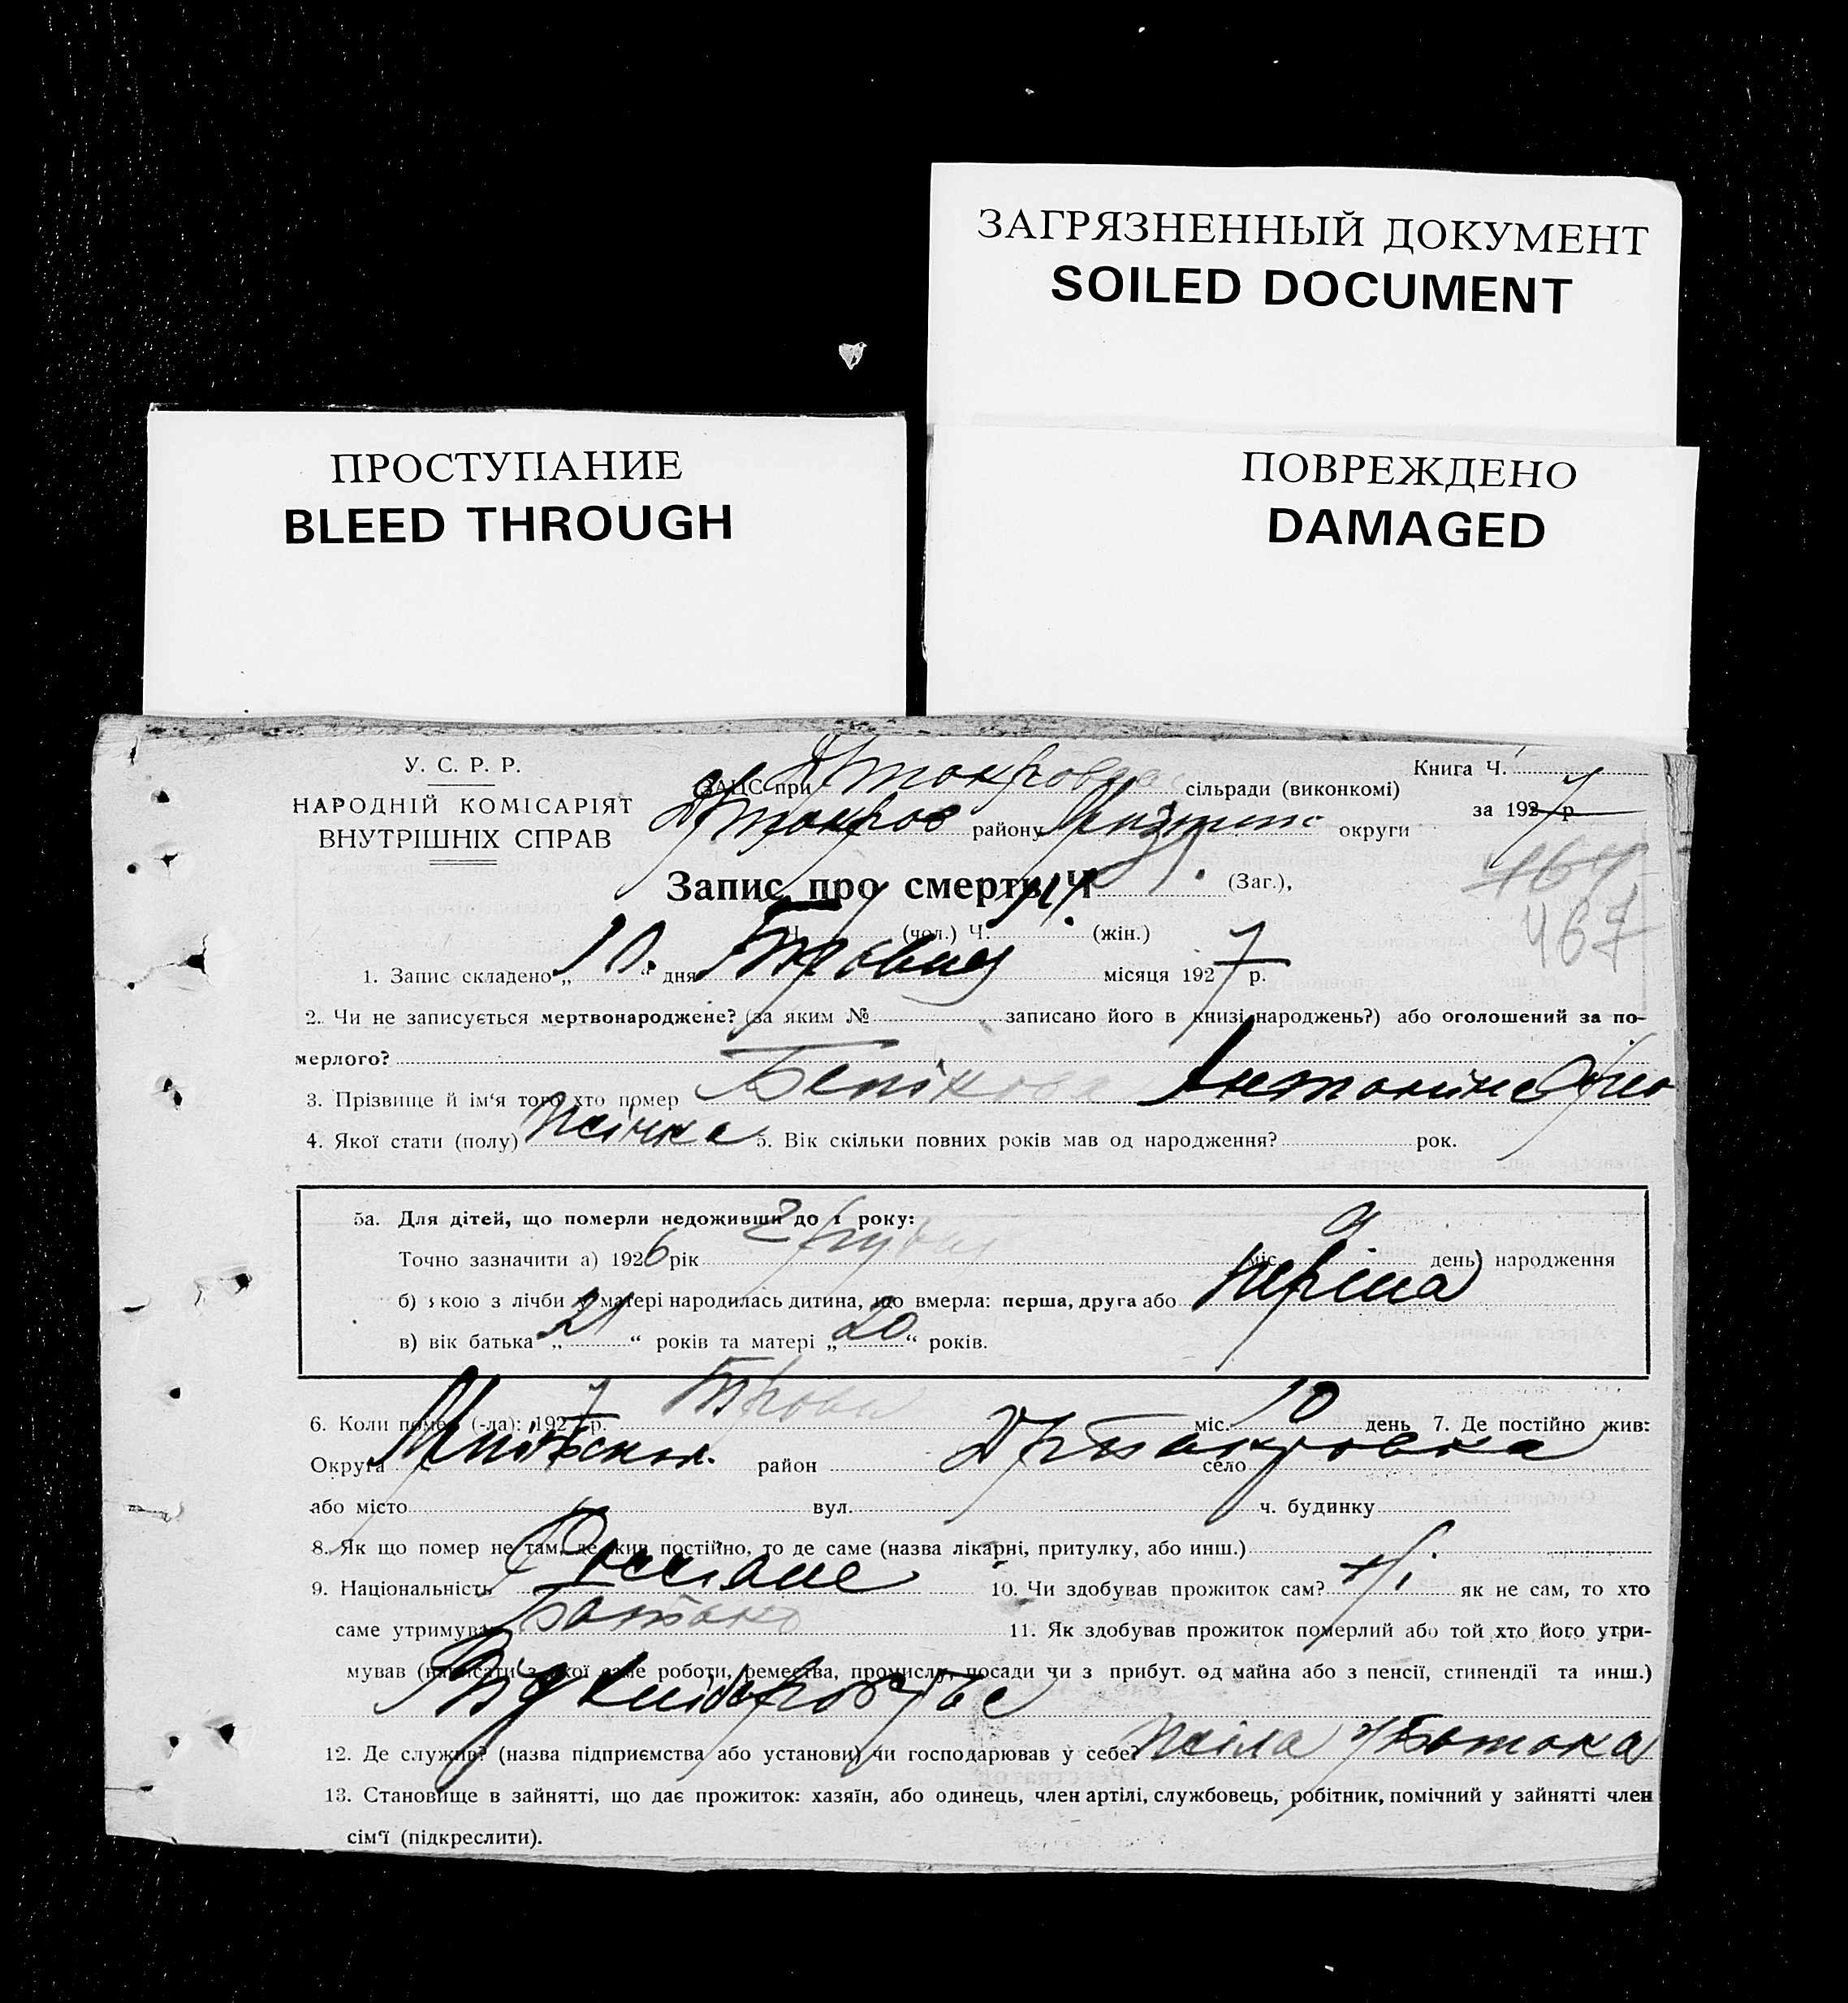 ЗАГРЯЗНЕННЫЙ ДОКУМЕНТ
SOILED DOCUMENT
ПРОСТУПАНИЕ
BLEED THROUGH
ПОВРЕЖДЕНО
DAMAGED
У. С. Р. Р.
НАРОДНІЙ КОМІСАРІЯТ
ВНУТРІШНІХ СПРАВ
ЗАЦС при сільради (виконкомі)
району округи
Книга Ч.
за 1927 р.
Запис про смерть Ч 14. (Заг.),
467
467
Ч. (чол.) Ч. (жін.)
1. Запис складено „ 10 “ дня Травня місяця 1927 р.
2. Чи не записується мертвонароджене? (за яким № записано його в книзі народжень?) або оголошений за по-
мерлого?
3. Прізвище й ім'я того хто помер Белікова Антоніна
4. Якої стати (полу) Жіночка 5. Вік скільки повних років мав од народження? рок.
5а. Для дітей, що померли недоживши до 1 року:
Точно зазначити а) 1926 рік грудня міс. 9 день) народження
б) якою з лічби у матері народилась дитина, що вмерла: перша, друга або перша
в) вік батька „ 21 “ років та матері „ 20 “ років.
6. Коли помер (-ла): 1927 р. Травня міс. 10 день 7. Де постійно жив:
Округа район село
або місто вул. ч. будинку
8. Як що помер не там, де жив постійно, то де саме (назва лікарні, притулку, або инш.)
9. Національність 10. Чи здобував прожиток сам? Ні як не сам, то хто
саме утримував Батько 11. Як здобував прожиток померлий або той хто його утри-
мував (написати з якої саме роботи, ремества, промислу, посади чи з прибут. од майна або з пенсії, стипендії та инш.)
Від хліборобства
12. Де служив? (назва підприємства або установи) чи господарював у себе? Жила у Батька
13. Становище в зайнятті, що дає прожиток: хазяїн, або одинець, член артілі, службовець, робітник, помічний у зайнятті член
сім'ї (підкреслити).